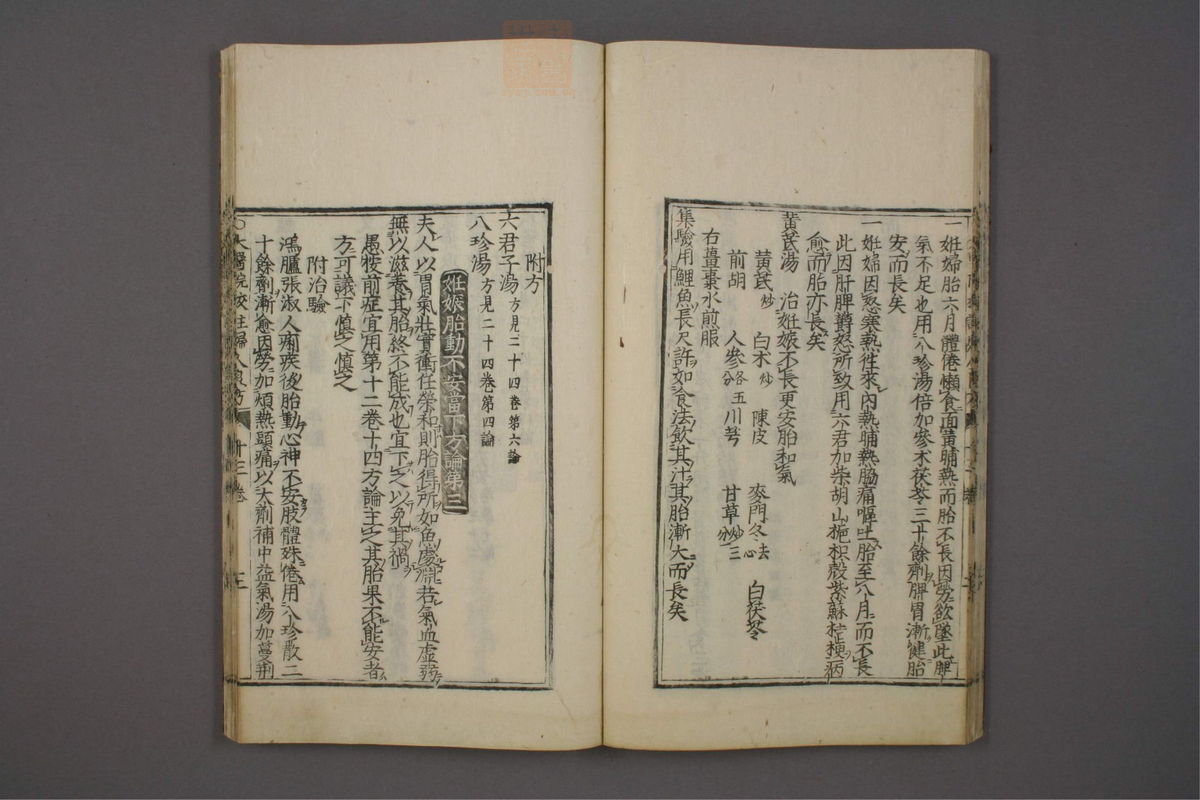 一妊婦胎六月體倦懶食面黃晡熱而胎不長因勞欲墜此脾
氣不足也用八珍湯倍加參术茯苓三十餘劑脾胃漸健胎
安而長矣
一妊婦因怒寒熱往來內熱晡熱脇痛嘔吐胎至八月而不長
此因肝脾鬱怒所致用六君加柴胡山梔枳殼紫蘇桔梗病
愈而胎亦長矣
黃芪湯 治妊娠不長更安胎和氣
黃芪炒 白术炒 陳皮 麥門冬去心 白茯苓
前胡 人參各五分 川芎 甘草炒三分
右薑棗水煎服
集驗用鯉魚長尺許如食法飲其汁其胎漸大而長矣
附方
六君子湯方見二十四卷第六論
八珍湯方見二十四卷第四論
妊娠胎動不安當下方論第三
夫人以胃氣壯實衝任榮和則胎得所如魚處淵若氣血虛弱
無以滋養其胎終不能成也宜下之以免其禍
愚按前症宜用第十二卷十四方論主之其胎果不能安者
方可議下慎之慎之
附治驗
鴻臚張淑人痢疾後胎動心神不安肢體殊倦用八珍散二
十餘劑漸愈因勞加煩熱頭痛以大劑補中益氣湯加蔓荊
○太醫院校註婦人良方 十三卷 三